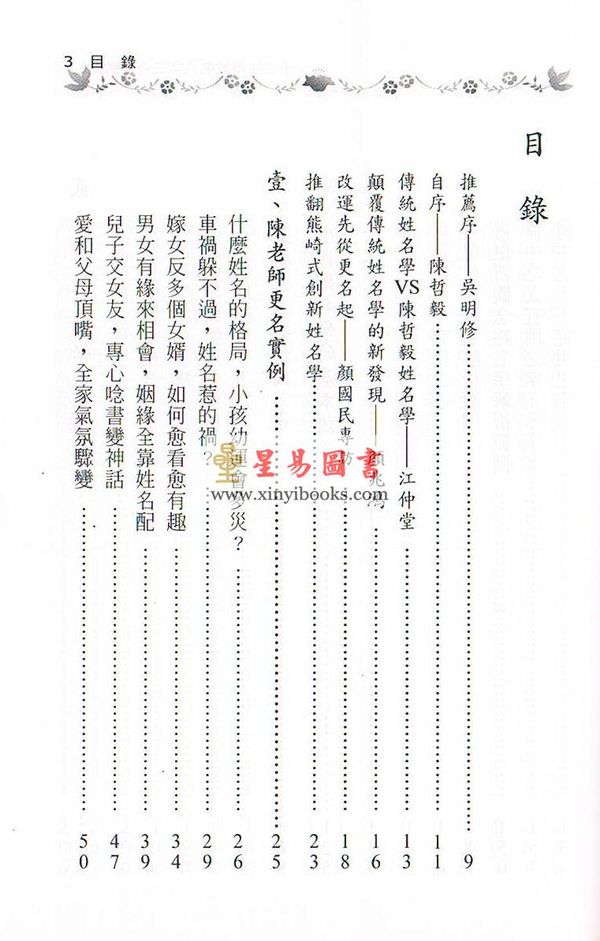 3 目 錄
目 錄
推薦序——吳明修 9
自序——陳哲毅 11
傳統姓名學VS陳哲毅姓名學——江仲堂 13
顛覆傳統姓名學的新發現——顏兆鴻 16
改運先從更名起——顏國民專訪 18
推翻熊崎式創新姓名學 23
壹、陳老師更名實例 25
什麼姓名的格局，小孩幼運會多災？ 26
車禍躲不過，姓名惹的禍？ 29
嫁女反多個女婿，如何愈看愈有趣 34
男女有緣來相會，姻緣全靠姓名配 39
兒子交女友，專心唸書變神話 47
愛和父母頂嘴，全家氣氛驟變 50
星易圖書
www.xinyibooks.com